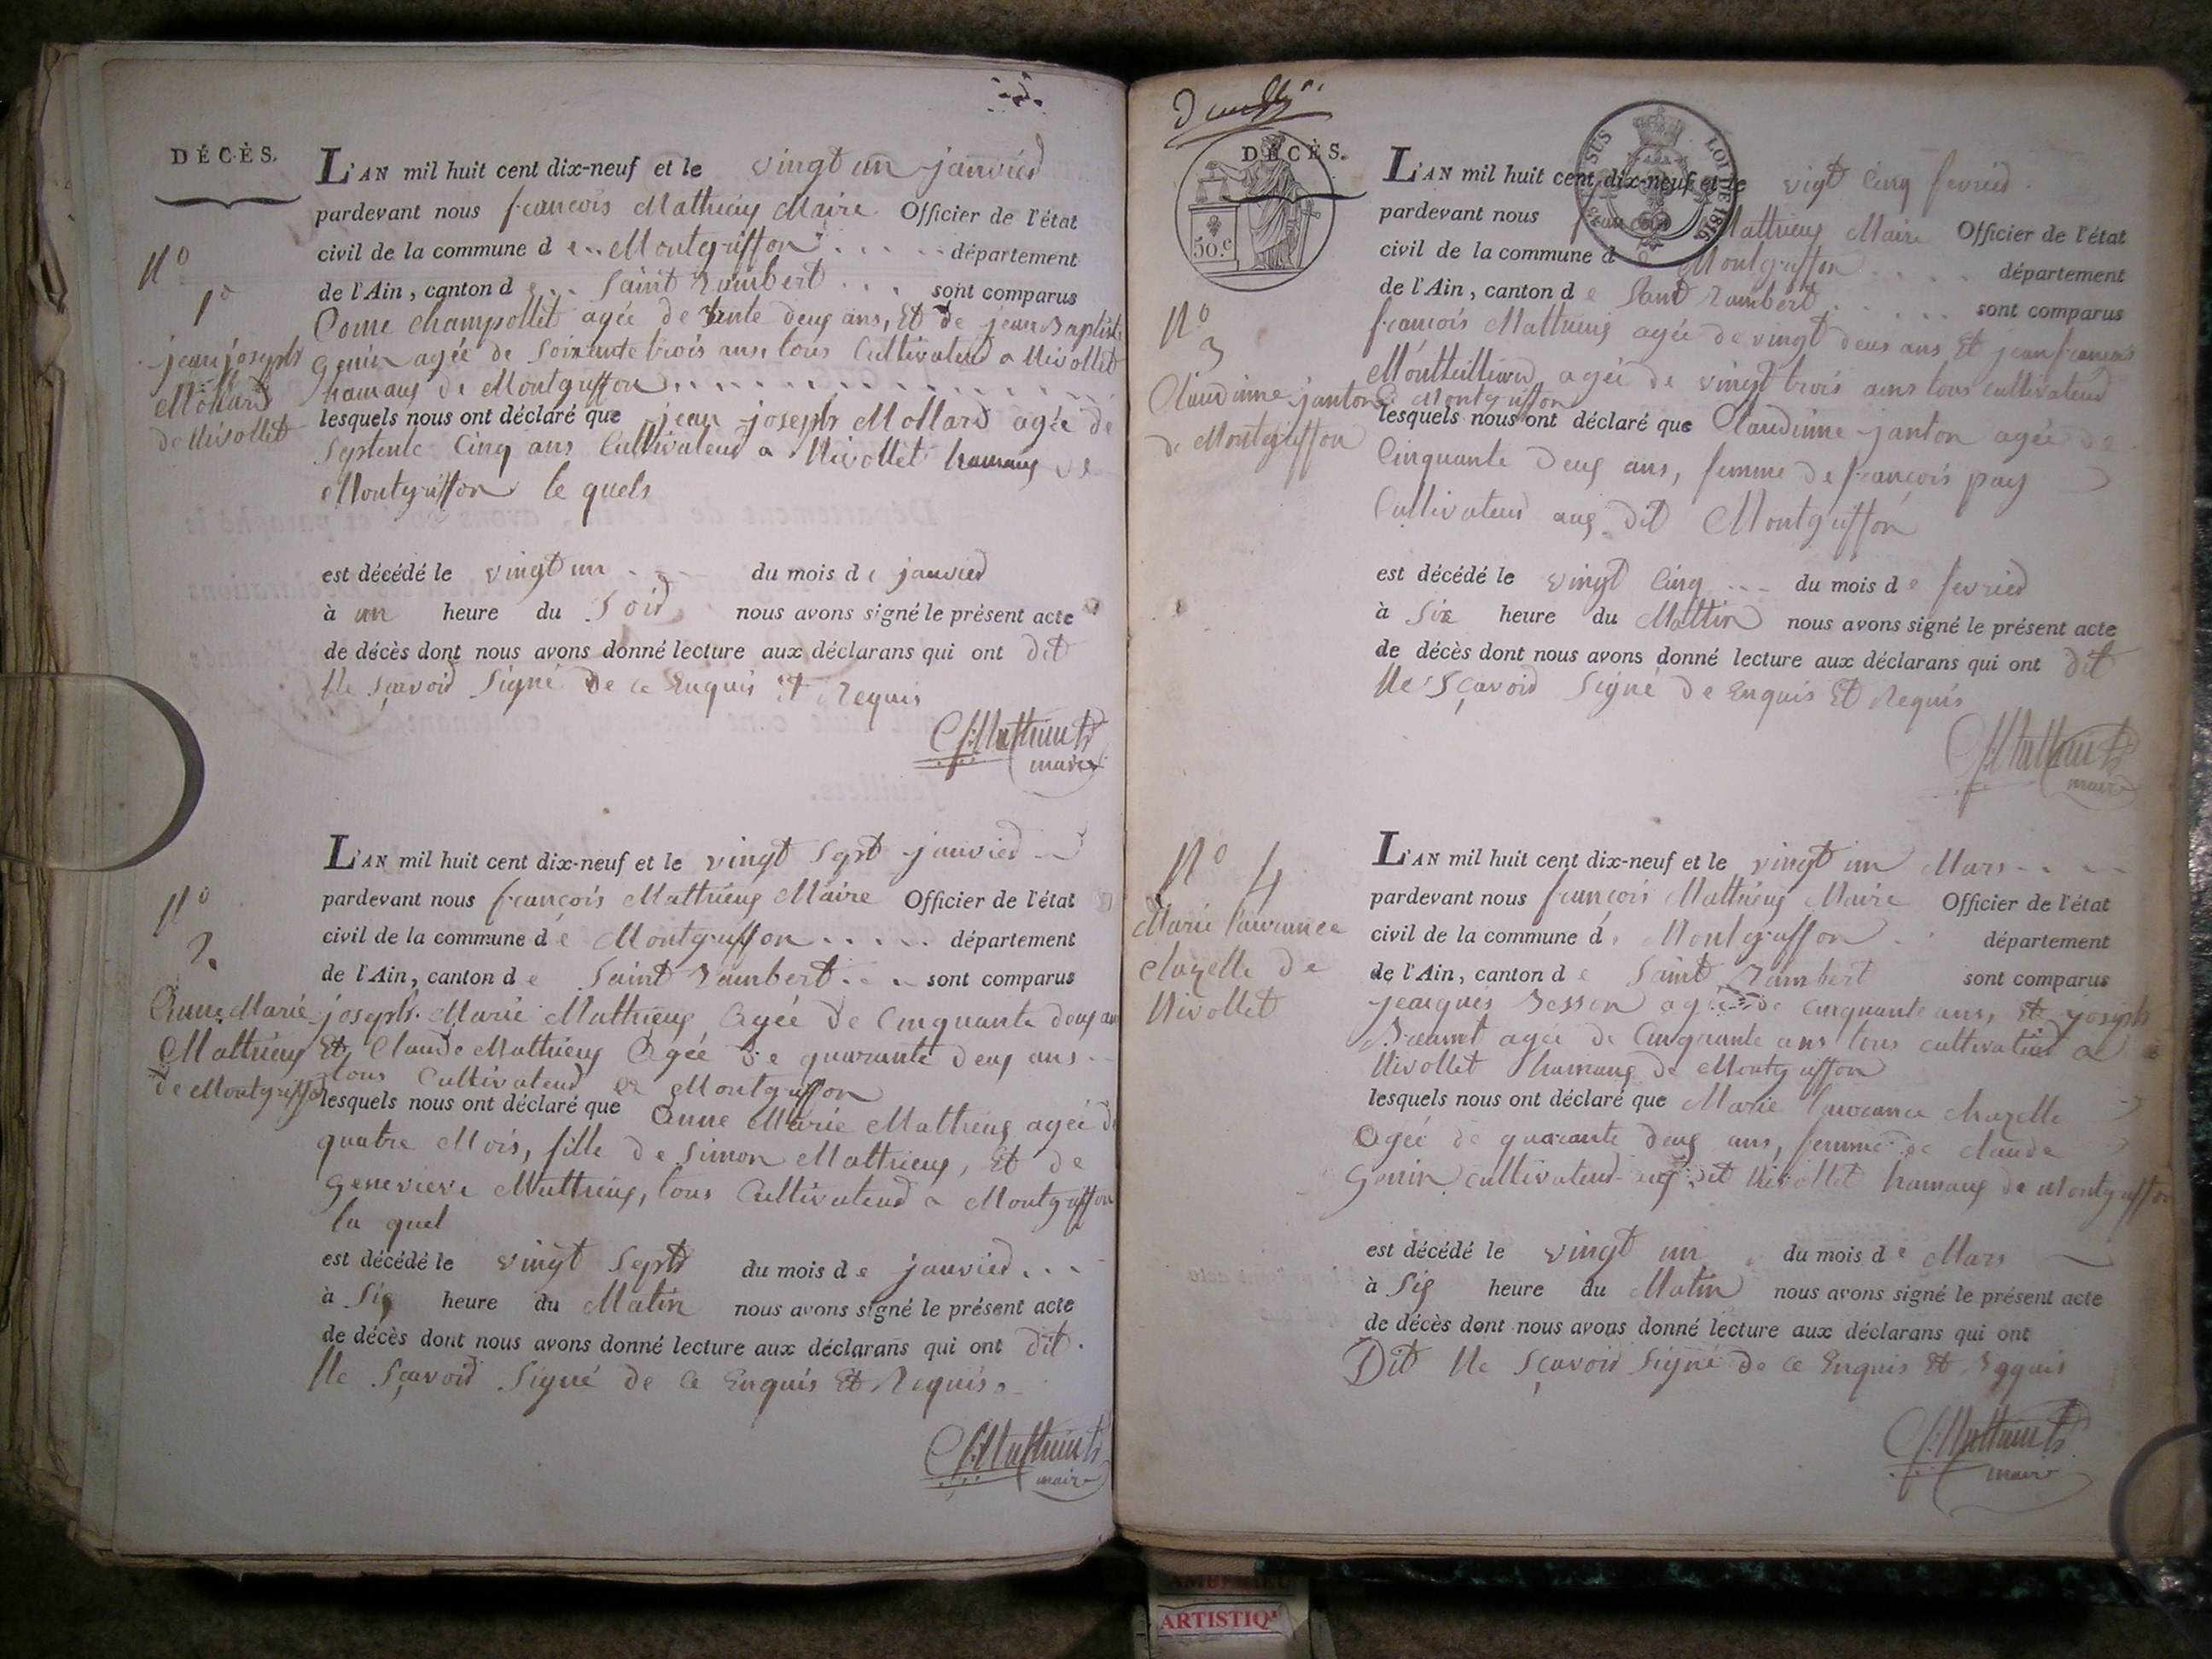 DÉCÈS.
L'AN mil huit cent dix-neuf et le vingt un janvier
pardevant nous françois Mathieu Maire Officier de l'état
civil de la commune de Montgriffon département
de l'Ain, canton de Saint Rambert sont comparus
Come Champollet agée de trente deux ans, Et de jean Baptiste
Genin agée de Soixante trois ans tous Cultivateur a Nivollet
hamaux de Montgriffon
N° 1°
jean joseph
Mollard
de Nivollet
lesquels nous ont déclaré que jean joseph Mollard agée de
Septente Cinq ans Cultivateur a Nivollet hamaux de
Montgriffon le quels
est décédé le vingt un du mois de janvier
à un heure du Soir nous avons signé le présent acte
de décès dont nous avons donné lecture aux déclarans qui ont dit
Ne Sçavoir Signé de ce Enquis Et Requis
f. Mathieu
maire
L'AN mil huit cent dix-neuf et le vingt Sept janvier
pardevant nous françois Mathieux Maire Officier de l'état
civil de la commune de Montgriffon département
de l'Ain, canton de Saint Rambert sont comparus
N°
2
Anne Marie
Mathieux
de Montgriffon
joseph Marie Mathieux Agée de Cinquante deux ans
Et Claude Mathieux Agée de quarante deux ans
tous Cultivateur a Montgriffon
lesquels nous ont déclaré que Anne Marie Mathieux agée de
quatre Mois, fille de Simon Mathieux, Et de
Genevieve Mathieux, tous Cultivateur a Montgriffon
la quel
est décédé le vingt Sept du mois de janvier
à Six heure du Matin nous avons signé le présent acte
de décès dont nous avons donné lecture aux déclarans qui ont dit
Ne Sçavoir Signé de ce Enquis Et Requis
f. Mathieu
maire
DÉCÈS.
50.c
LOI DE 1816
L'AN mil huit cent dix-neuf et le vigt Cinq fevrier
pardevant nous françois Mathieux Maire Officier de l'état
civil de la commune de Montgriffon département
de l'Ain, canton de Saint Rambert sont comparus
N°
3
Claudinne janton
de Montgriffon
françois Mathieux agée de vingt deux ans Et jean françois
agée de vingt trois ans tous cultivateur
a Montgriffon
lesquels nous ont déclaré que Claudinne janton agée de
Cinquante Deux ans, femme de françois pay
Cultivateur aux dit Montgriffon
est décédé le vingt Cinq du mois de fevrier
à Six heure du Mattin nous avons signé le présent acte
de décès dont nous avons donné lecture aux déclarans qui ont dit
Ne Sçavoir Signé de Enquis Et Requis
f. Mathieu
maire
L'AN mil huit cent dix-neuf et le vingt un Mars
pardevant nous françois Mathieux Maire Officier de l'état
civil de la commune de Montgriffon département
de l'Ain, canton de Saint Rambert sont comparus
N° 4
Marie
de
Nivollet
jeacques Besson agée de cinquante ans, Et joseph
agée de Cinquante ans tous cultivateur a
Nivollet hamaux de Montgriffon
lesquels nous ont déclaré que Marie chazelle
Agée de quarante deux ans, femme de claude
Genin cultivateur aux dit Nivollet hamaux de Montgriffon
est décédé le vingt un du mois de Mars
à Six heure du Matin nous avons signé le présent acte
de décès dont nous avons donné lecture aux déclarans qui ont
Dit Ne Sçavoir Signé de ce Enquis Et
f. Mathieu
maire
ARTISTIQ